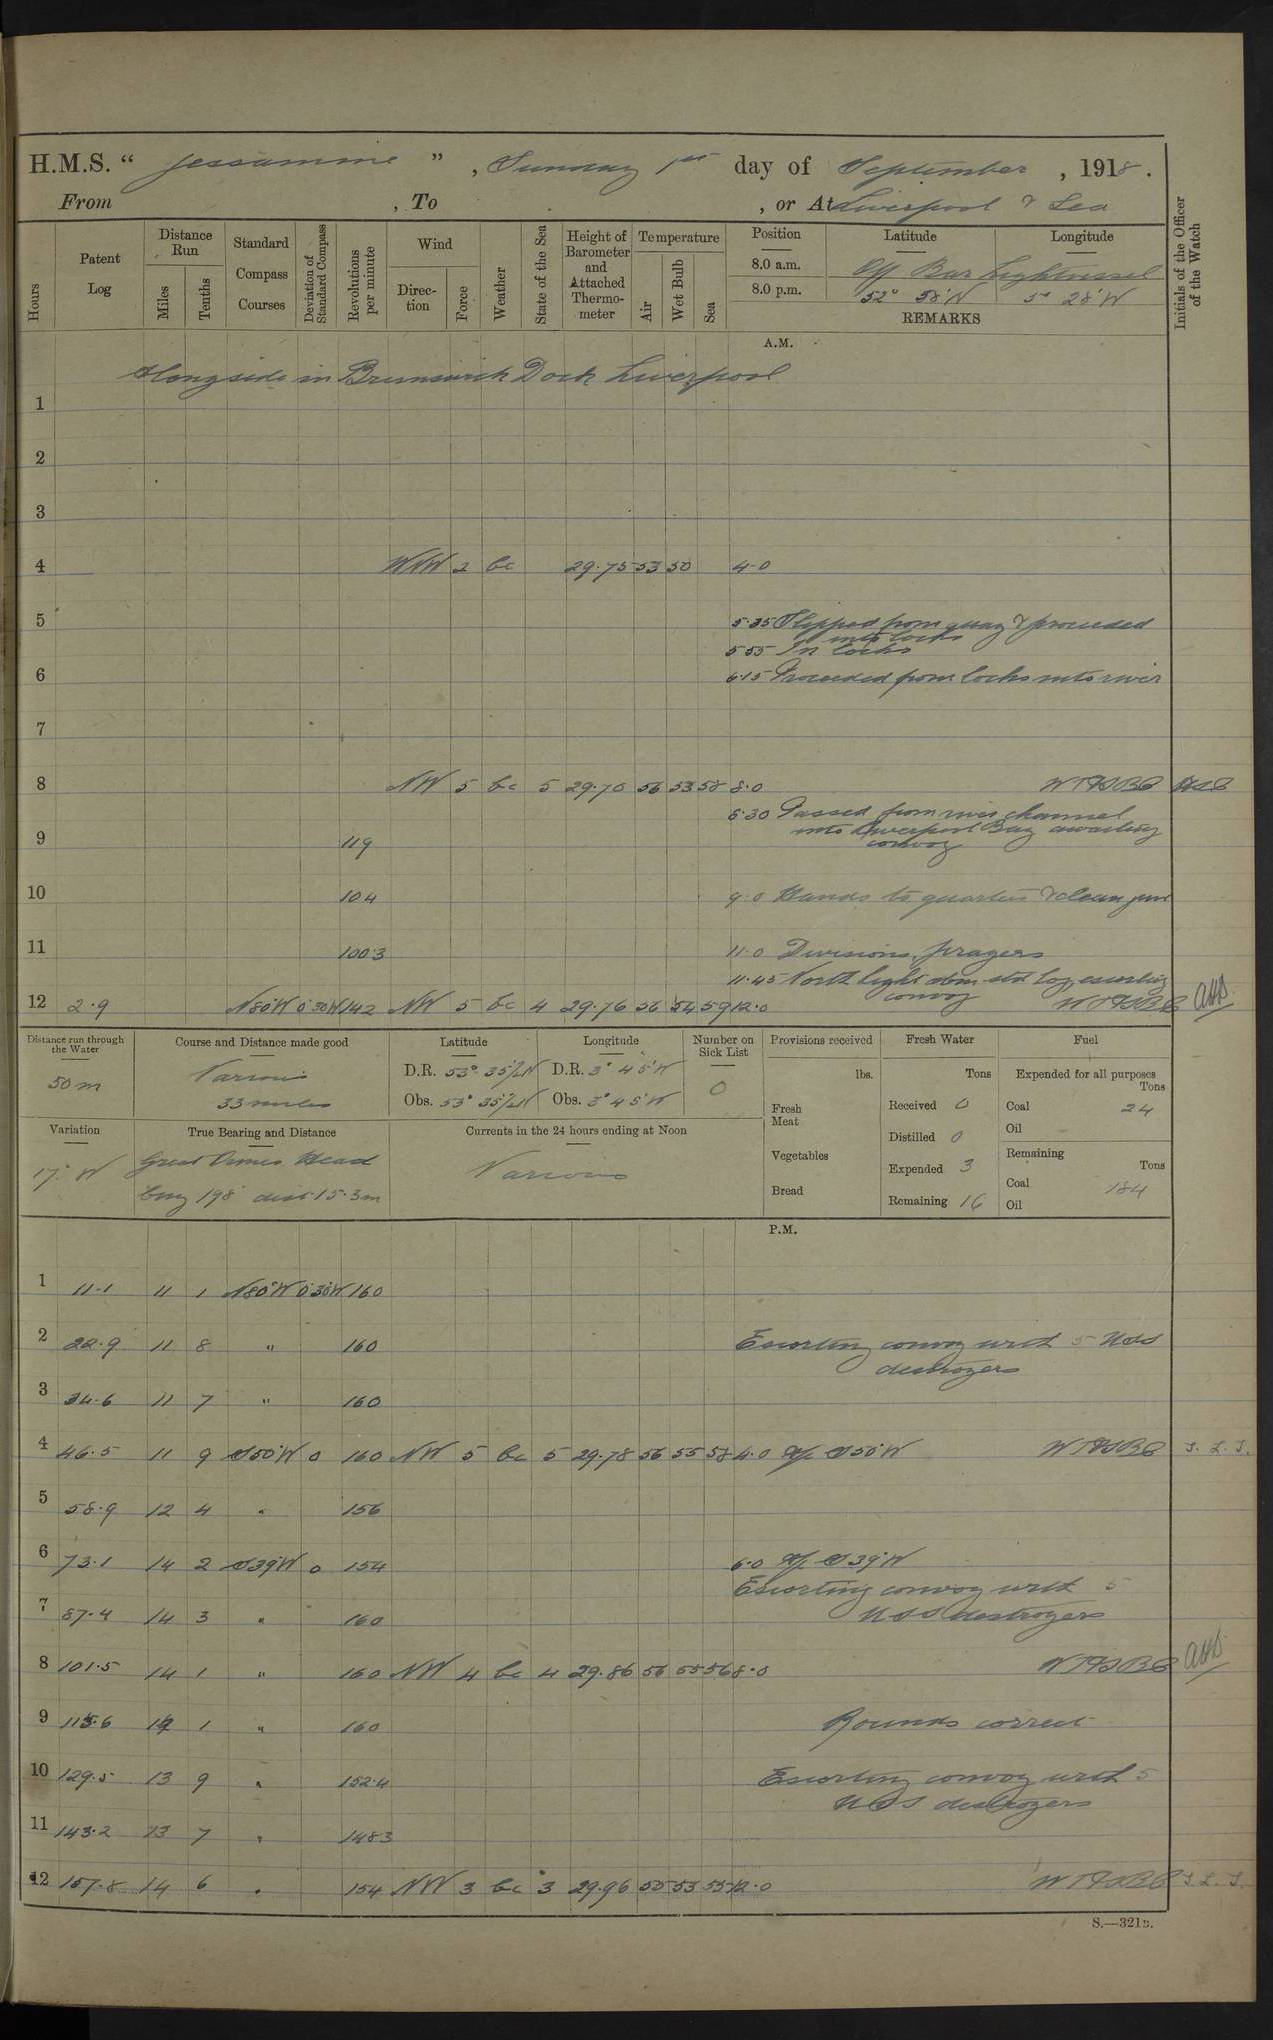 H.M.S. " Jessamine ", Sunday 1st day of September, 1918.
From , To , or At Liverpool & Sea
Hours
Patent Log
Distance Run
Miles
Tenths
Standard Compass Courses
Deviation of Standard Compass
Revolutions per minute
Wind
Direction
Force
Weather
State of the Sea
Height of Barometer and Attached Thermometer
Temperature
Air
Wet Bulb
Sea
Position Latitude Longitude
8.0 a.m. Off Bar Lightvessel
8.0 p.m. 52° 58' N 5° 28' W
REMARKS
Initials of the Officer of the Watch
A.M.
Alongside in Brunswick Dock Liverpool
1
2
3
4 NW 2 bc 29.75 53 50 4.0
5 5.35 Slipped from quay & proceeded
into locks
5.55 In locks
6 6.15 Proceeded from locks into river
7
8 NW 5 bc 5 29.70 56 53 58 8.0
8.30 Passed from river channel
9 119 into Liverpool Bay awaiting
convoy
10 104 9.0 Hands to quarters & clean guns
11 100.3 11.0 Divisions, prayers
11.45 North light abm set log, escorting
convoy
12 2.9 N80°W 0°30'W 142 NW 5 bc 4 29.76 56 54 59 12.0
Distance run through the Water
50 m
Course and Distance made good
Various
33 miles
Latitude
D.R. 53° 35½'N
Obs. 53° 35½'N
Longitude
D.R. 3° 45' W
Obs. 3° 45' W
Number on Sick List
0
Provisions received
lbs.
Fresh Meat
Vegetables
Bread
Fresh Water
Tons
Received 0
Distilled 0
Expended 3
Remaining 16
Fuel
Expended for all purposes
Tons
Coal 24
Oil
Remaining
Tons
Coal 184
Oil
Variation
17° W
True Bearing and Distance
Great Ormes Head
brng 198° dist 15.3m
Currents in the 24 hours ending at Noon
Various
P.M.
1 11.1 11 1 N80°W 0°30'W 160
2 22.9 11 8 " 160 Escorting convoy with 5 USS
destroyers
3 34.6 11 7 " 160
4 46.5 11 9 S50°W 0 160 NW 5 bc 5 29.78 56 55 58 4.0 A/c S50°W J. L. J.
5 58.9 12 4 " 156
6 73.1 14 2 S39°W 0 154 6.0 A/c S39°W
Escorting convoy with 5
7 87.4 14 3 " 160 USS destroyers
8 101.5 14 1 " 160 NW 4 bc 4 29.86 56 55 56 8.0
9 115.6 14 1 " 160 Rounds correct
10 129.5 13 9 " 152.4 Escorting convoy with 5
USS destroyers
11 143.2 13 7 " 148.3
12 157.8 14 6 " 154 NW 3 bc 3 29.96 55 53 55 12.0 J. L. J.
S.—321B.